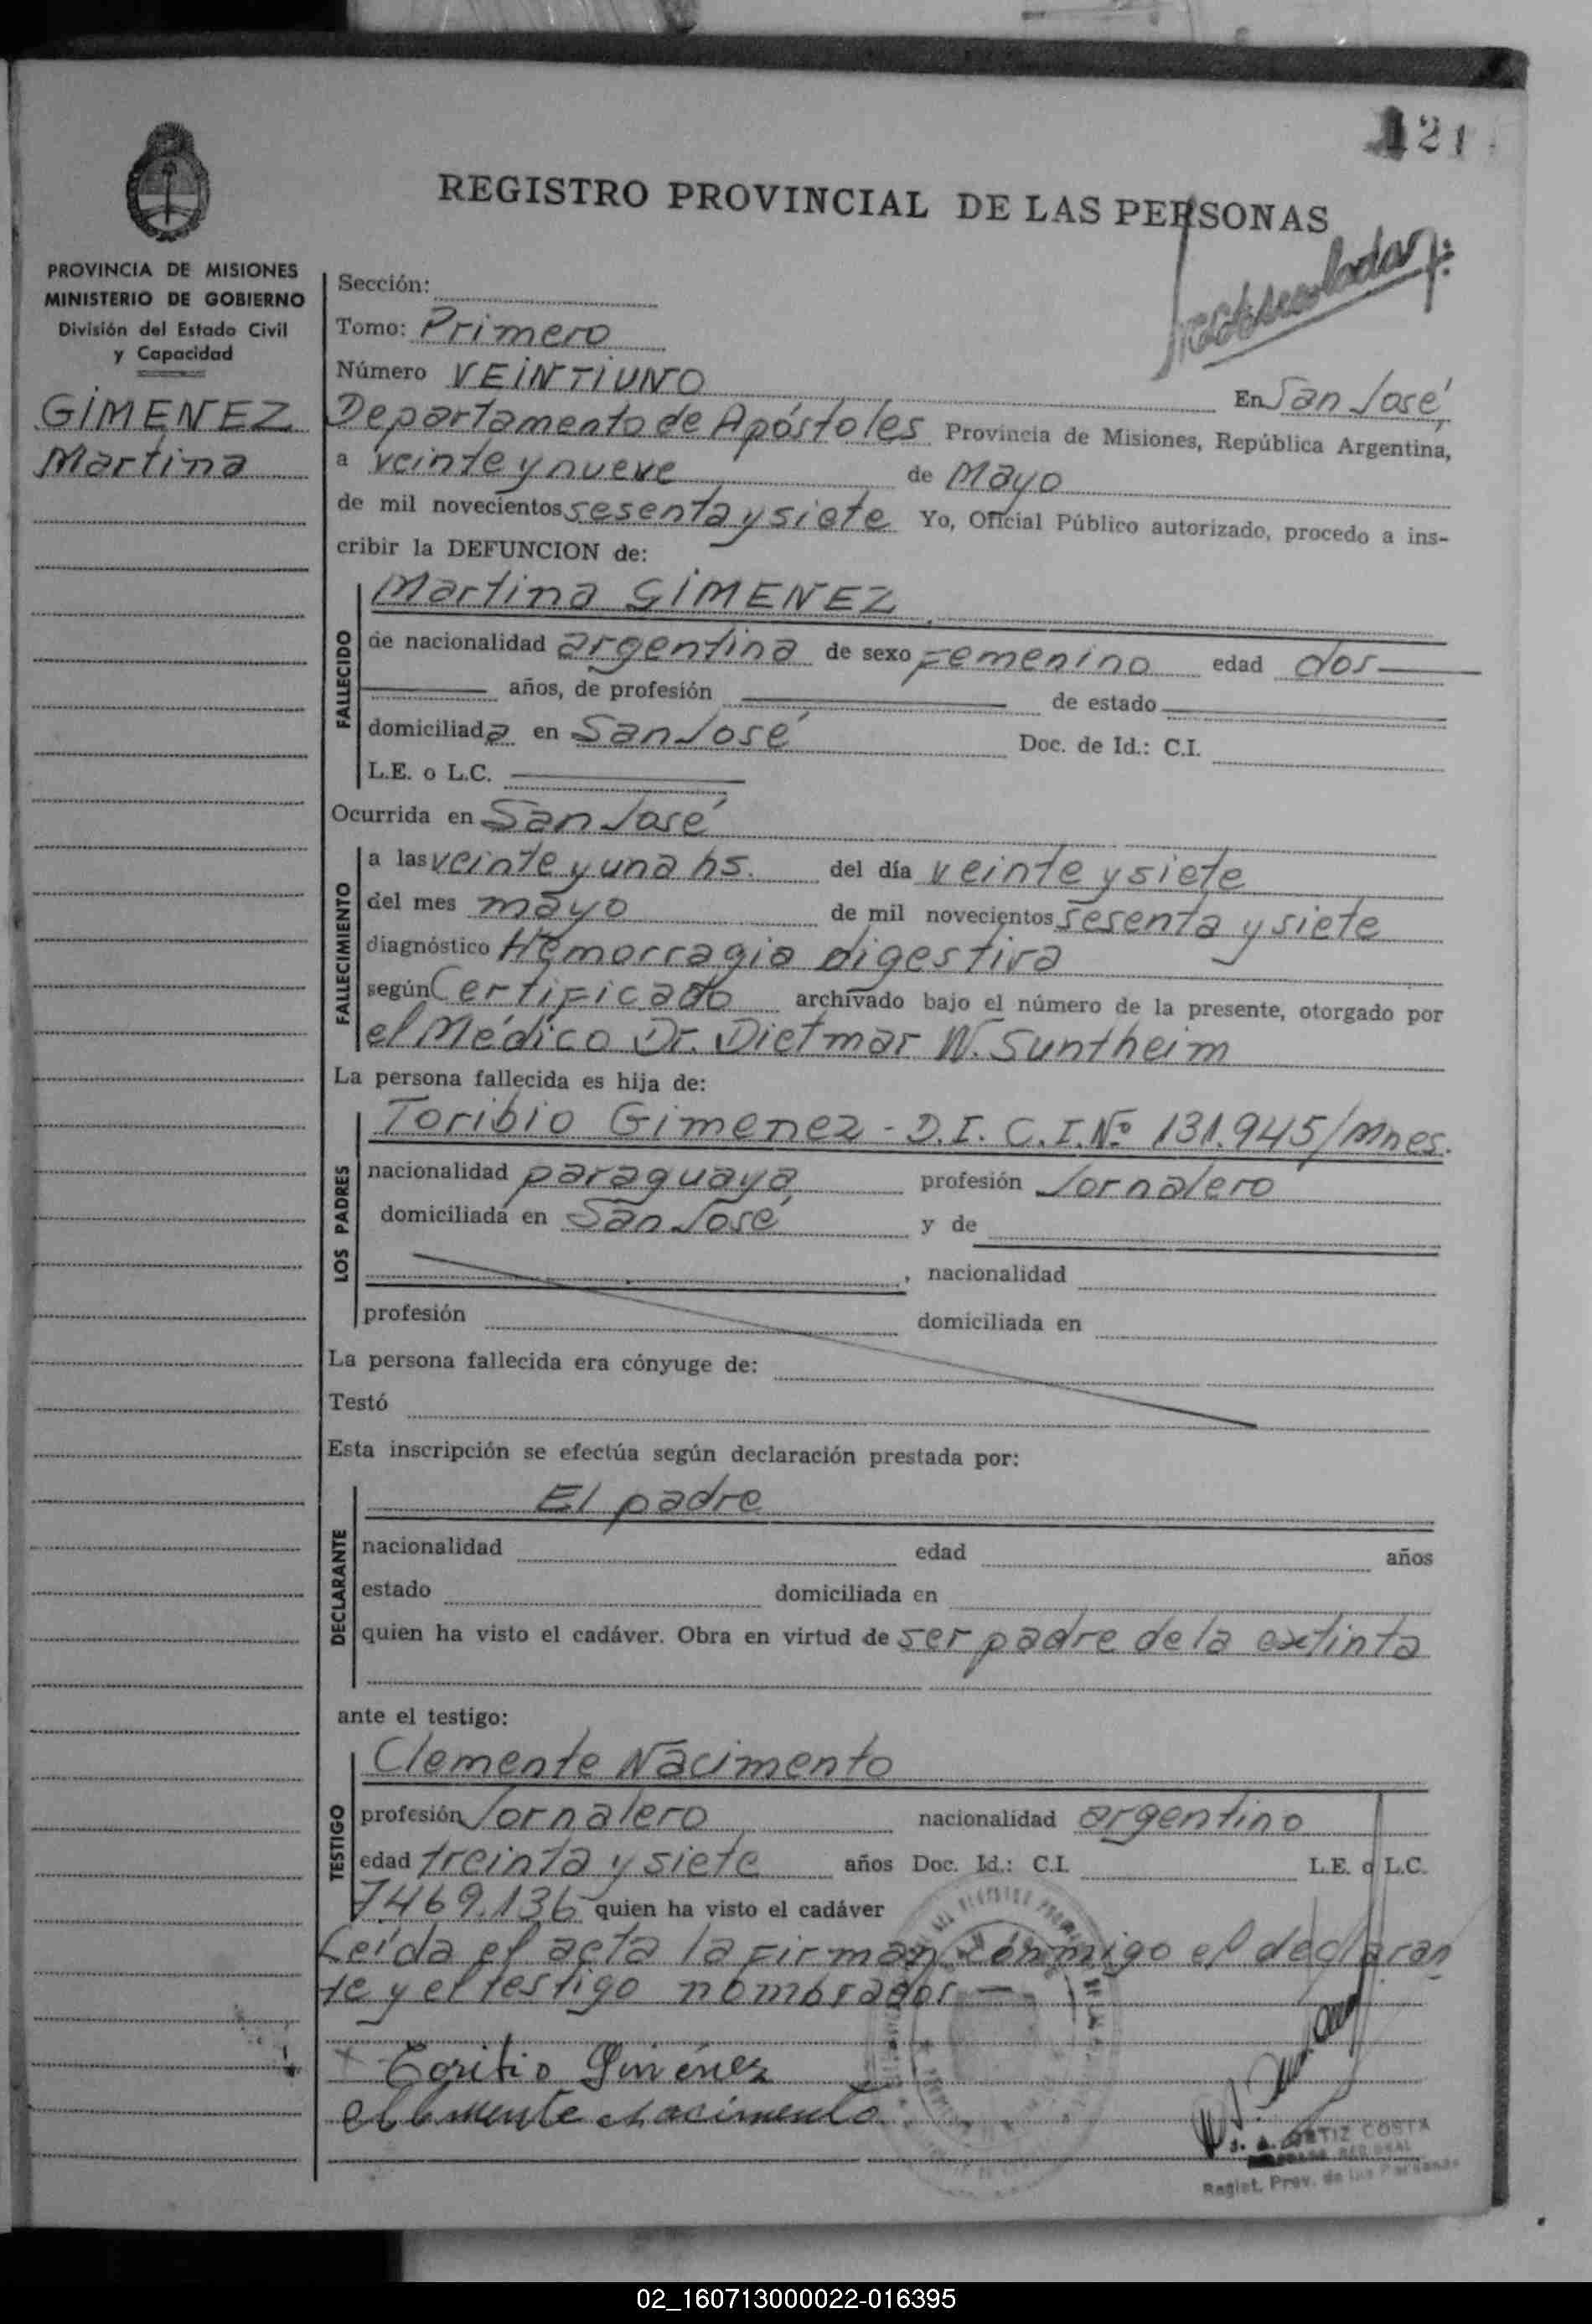 121
REGISTRO PROVINCIAL DE LAS PERSONAS
PROVINCIA DE MISIONES
MINISTERIO DE GOBIERNO
División del Estado Civil
y Capacidad
GIMENEZ
Martina
Sección:
Tomo: Primero
Número VEINTIUNO En San José,
Departamento de Apóstoles Provincia de Misiones, República Argentina,
a veinte y nueve de Mayo
de mil novecientos sesenta y siete Yo, Oficial Público autorizado, procedo a ins-
cribir la DEFUNCION de:
Martina GIMENEZ
FALLECIDO
de nacionalidad argentina de sexo Femenino edad dos
años, de profesión de estado
domiciliada en San José Doc. de Id.: C.I.
L.E. o L.C.
Ocurrida en San José
FALLECIMIENTO
a las veinte y una hs. del día veinte y siete
del mes mayo de mil novecientos sesenta y siete
diagnóstico Hemorragia digestiva
según Certificado archivado bajo el número de la presente, otorgado por
el Médico Dr. Dietmar W. Suntheim
La persona fallecida es hija de:
LOS PADRES
Toribio Gimenez - D.I. C.I. Nº 131.945/Mnes.
nacionalidad paraguaya profesión Jornalero
domiciliada en San José y de
, nacionalidad
profesión domiciliada en
La persona fallecida era cónyuge de:
Testó
Esta inscripción se efectúa según declaración prestada por:
DECLARANTE
El padre
nacionalidad edad años
estado domiciliada en
quien ha visto el cadáver. Obra en virtud de ser padre de la extinta
ante el testigo:
TESTIGO
Clemente Nacimento
profesión Jornalero nacionalidad argentino
edad treinta y siete años Doc. Id.: C.I. L.E. o L.C.
7469.136 quien ha visto el cadáver
Leída el acta la firman conmigo el declaran
te y el testigo nombrados —
Toribio Gimenez
Clemente Nacimento
J. A. ORTIZ COSTA
Regist. Prov. de las Personas
02_160713000022-016395